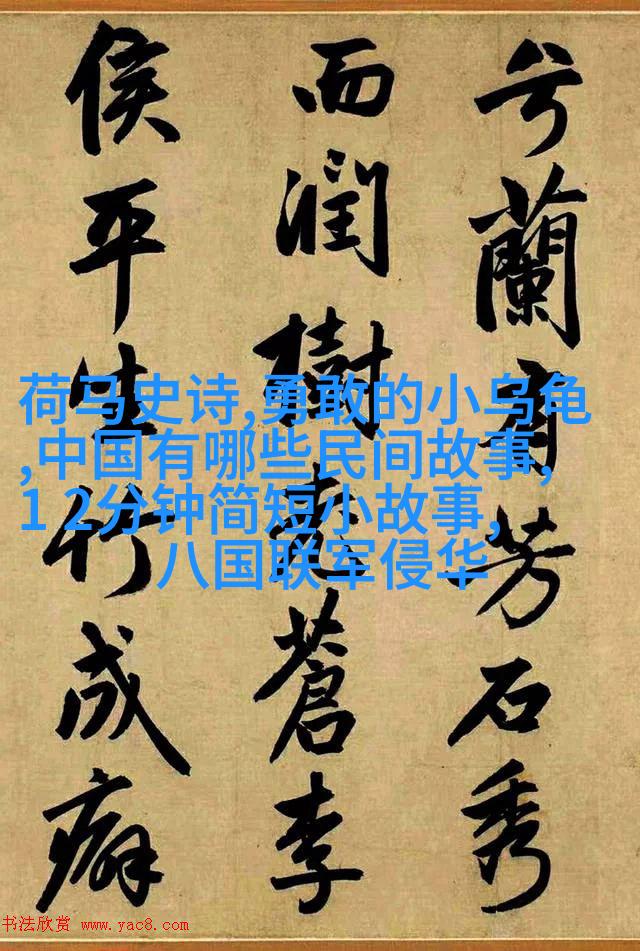 兮蘭有芳石秀
而潤樹蒼李
侯平生行成癖
荷马史诗,勇敢的小乌龟
,中国有哪些民间故事,
1 2分钟简短小故事,
八国联军侵华
书法欣赏 www.yac8.com